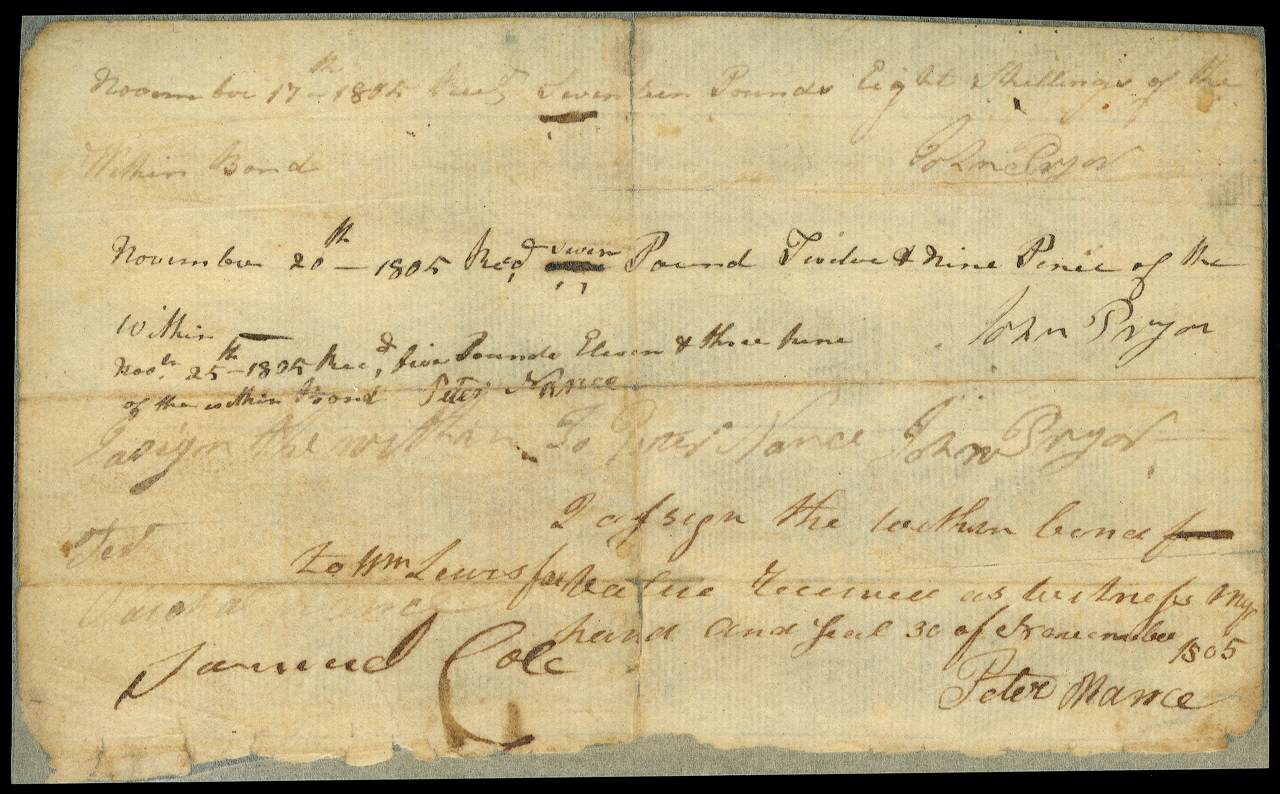 November 17th – 1805 Recd Seventeen Pounds Eight Shillings of the
Within Bond John Pryor
November 20th – 1805 Recd Seven Pound Twelve & Nine Pence of the
Within John Pryor
Novbr 25th – 1805 Recd, five Pounds Eleven & three pence
of the within Bond Peter Nance
I asign the within To Peter Nance John Pryor
I assign the within bond
Test
to Wm Lewis for Value Received as witness my
hand and Seal 30 of November 1805
Samuel Cole
Peter Nance